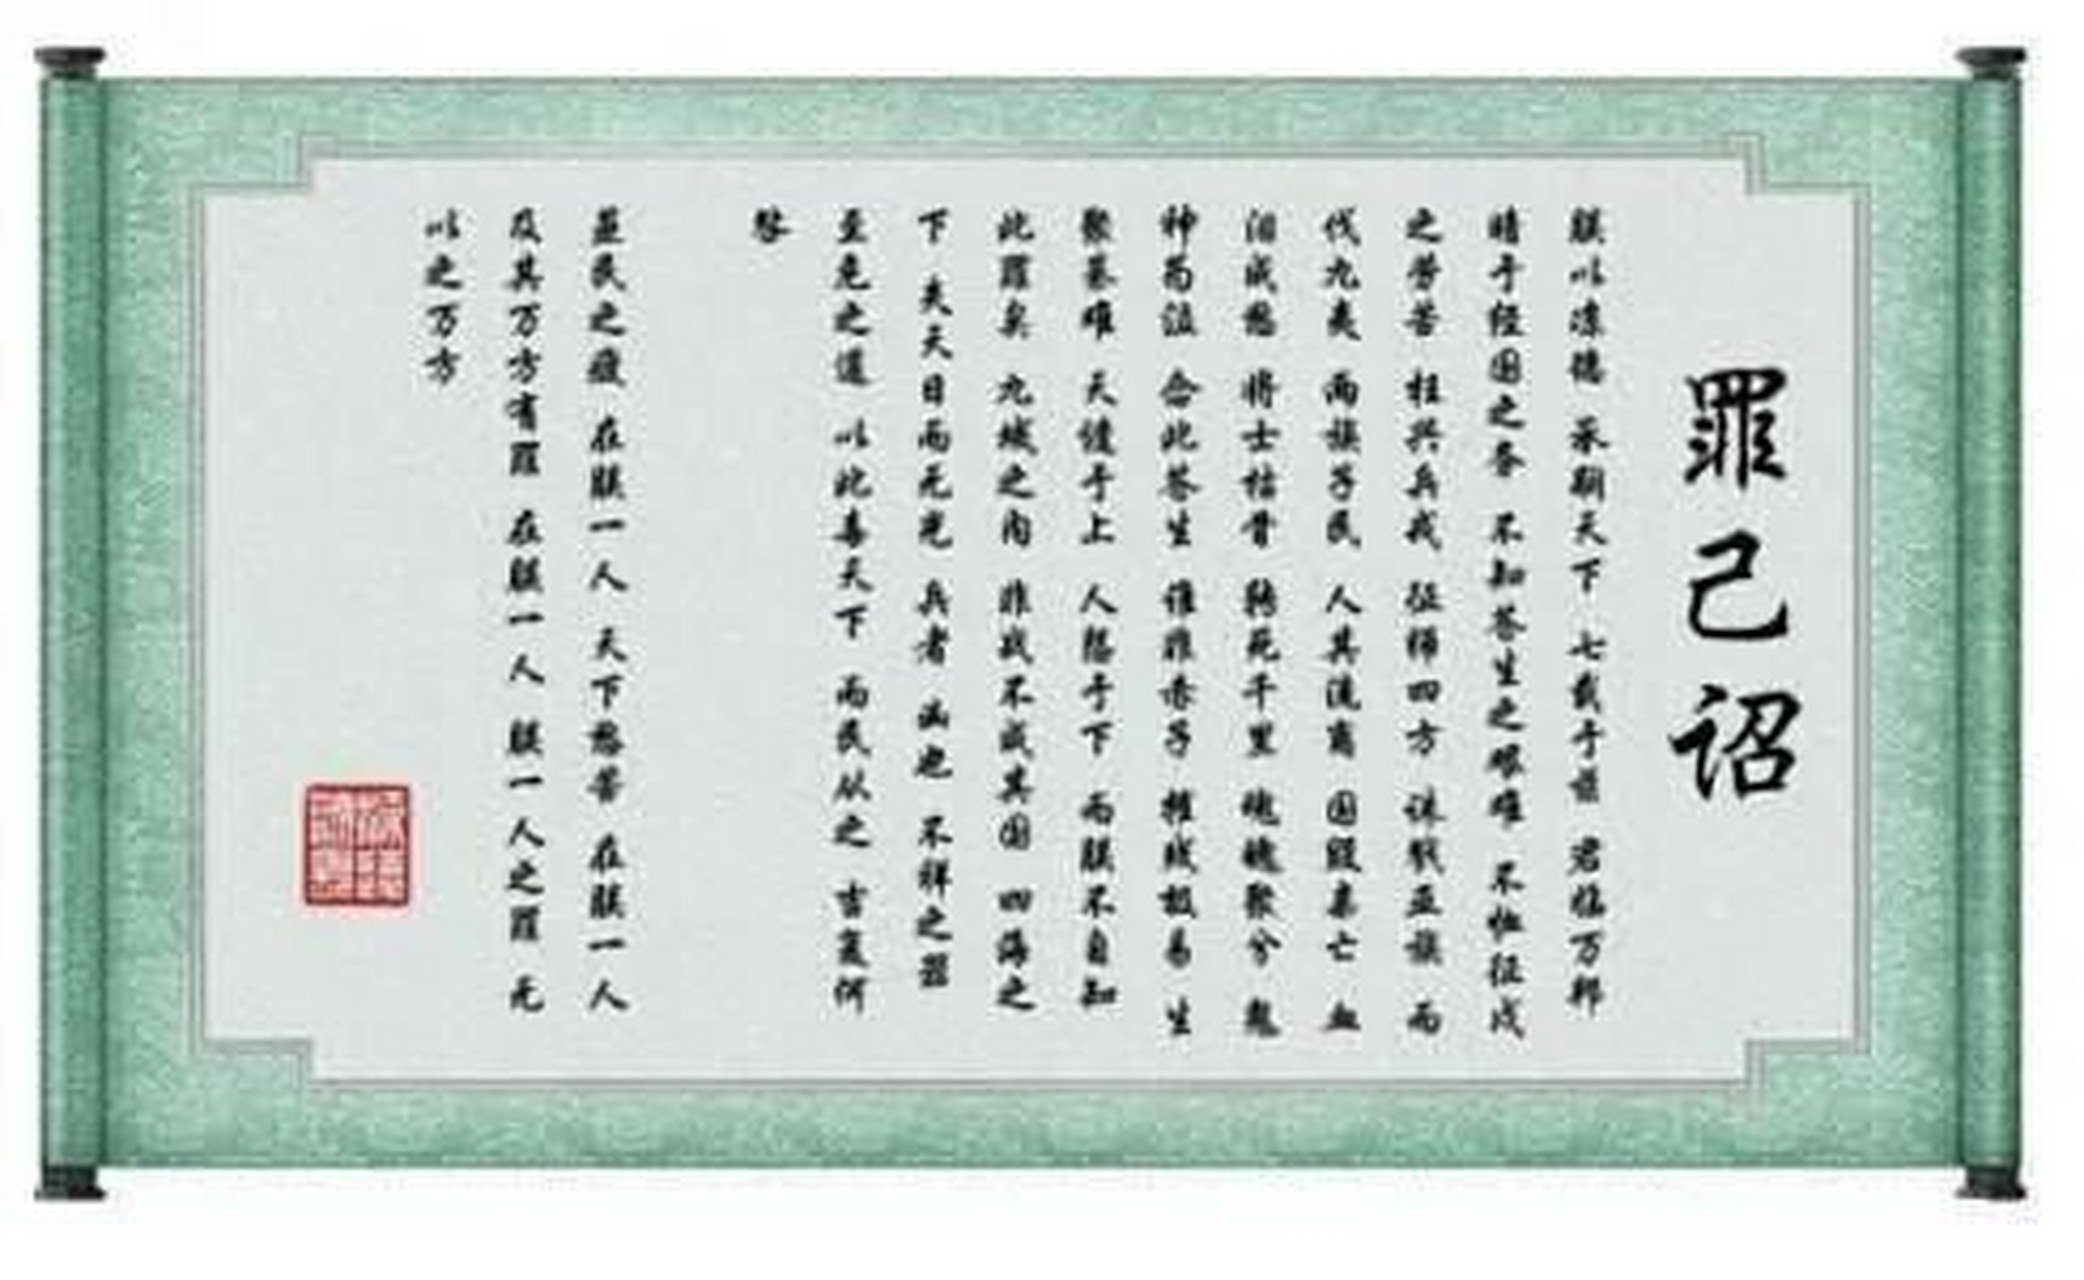 罪己诏
朕以凉德 承嗣天下 七载于兹 君临万邦
晴于经国之务 不知苍生之艰难 不恤征戍
之劳苦 枉兴兵戎 征师四方 诛戮五族 而
伐九夷 两族子民 人其流离 国毁家亡 血
泪成愁 将士枯骨 转死千里 魂魄聚兮 鬼
神为泣 念此苍生 谁非赤子 摧残极易 生
聚甚难 天谴于上 人怨于下 而朕不自知
此罪矣 九域之内 非战不成其国 四海之
下 夫天日而无光 兵者 凶也 不祥之器
至危之道 以此毒天下 而民从之 吉复何
咎
民之疲 在朕一人 天下愁苦 在朕一人
及其万方有罪 在朕一人 朕一人之罪 无
以之万方